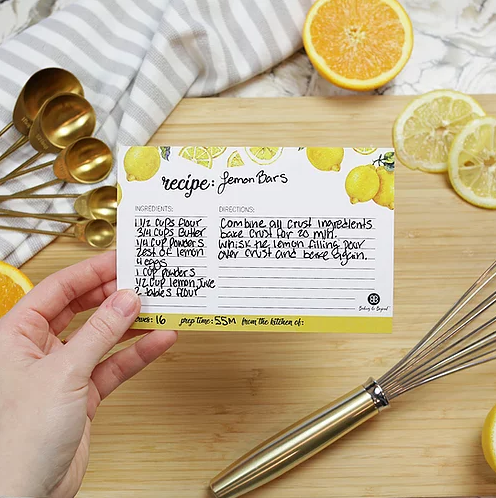 recipe: Lemon Bars
INGREDIENTS:
1 1/2 cups flour
3/4 cups Butter
1/4 cup powder s
zest of lemon
4 eggs
1 cup powder s
1/2 cup lemon Juice
2 tables flour
DIRECTIONS:
Combine all crust ingredients
bake crust for 20 min.
Whisk the lemon filling pour
over crust and bake again.
serves: 16 prep time: 55M from the kitchen of: